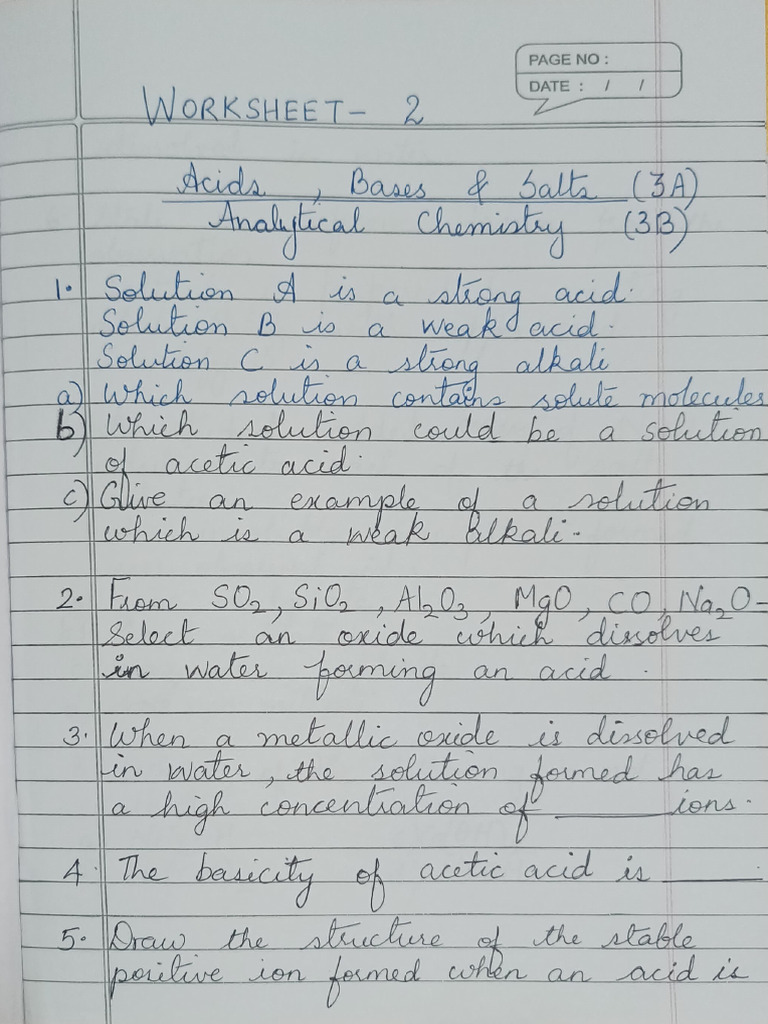 PAGE NO :
DATE : / /
WORKSHEET - 2
Acids, Bases & Salts (3A)
Analytical Chemistry (3B)
1. Solution A is a strong acid.
Solution B is a weak acid.
Solution C is a strong alkali
a) Which solution contains solute molecules
b) Which solution could be a solution
of acetic acid.
c) Give an example of a solution
which is a weak alkali.
2. From SO₂, SiO₂, Al₂O₃, MgO, CO, Na₂O-
Select an oxide which dissolves
in water forming an acid.
3. When a metallic oxide is dissolved
in water, the solution formed has
a high concentration of ______ ions.
4. The basicity of acetic acid is ______.
5. Draw the structure of the stable
positive ion formed when an acid is